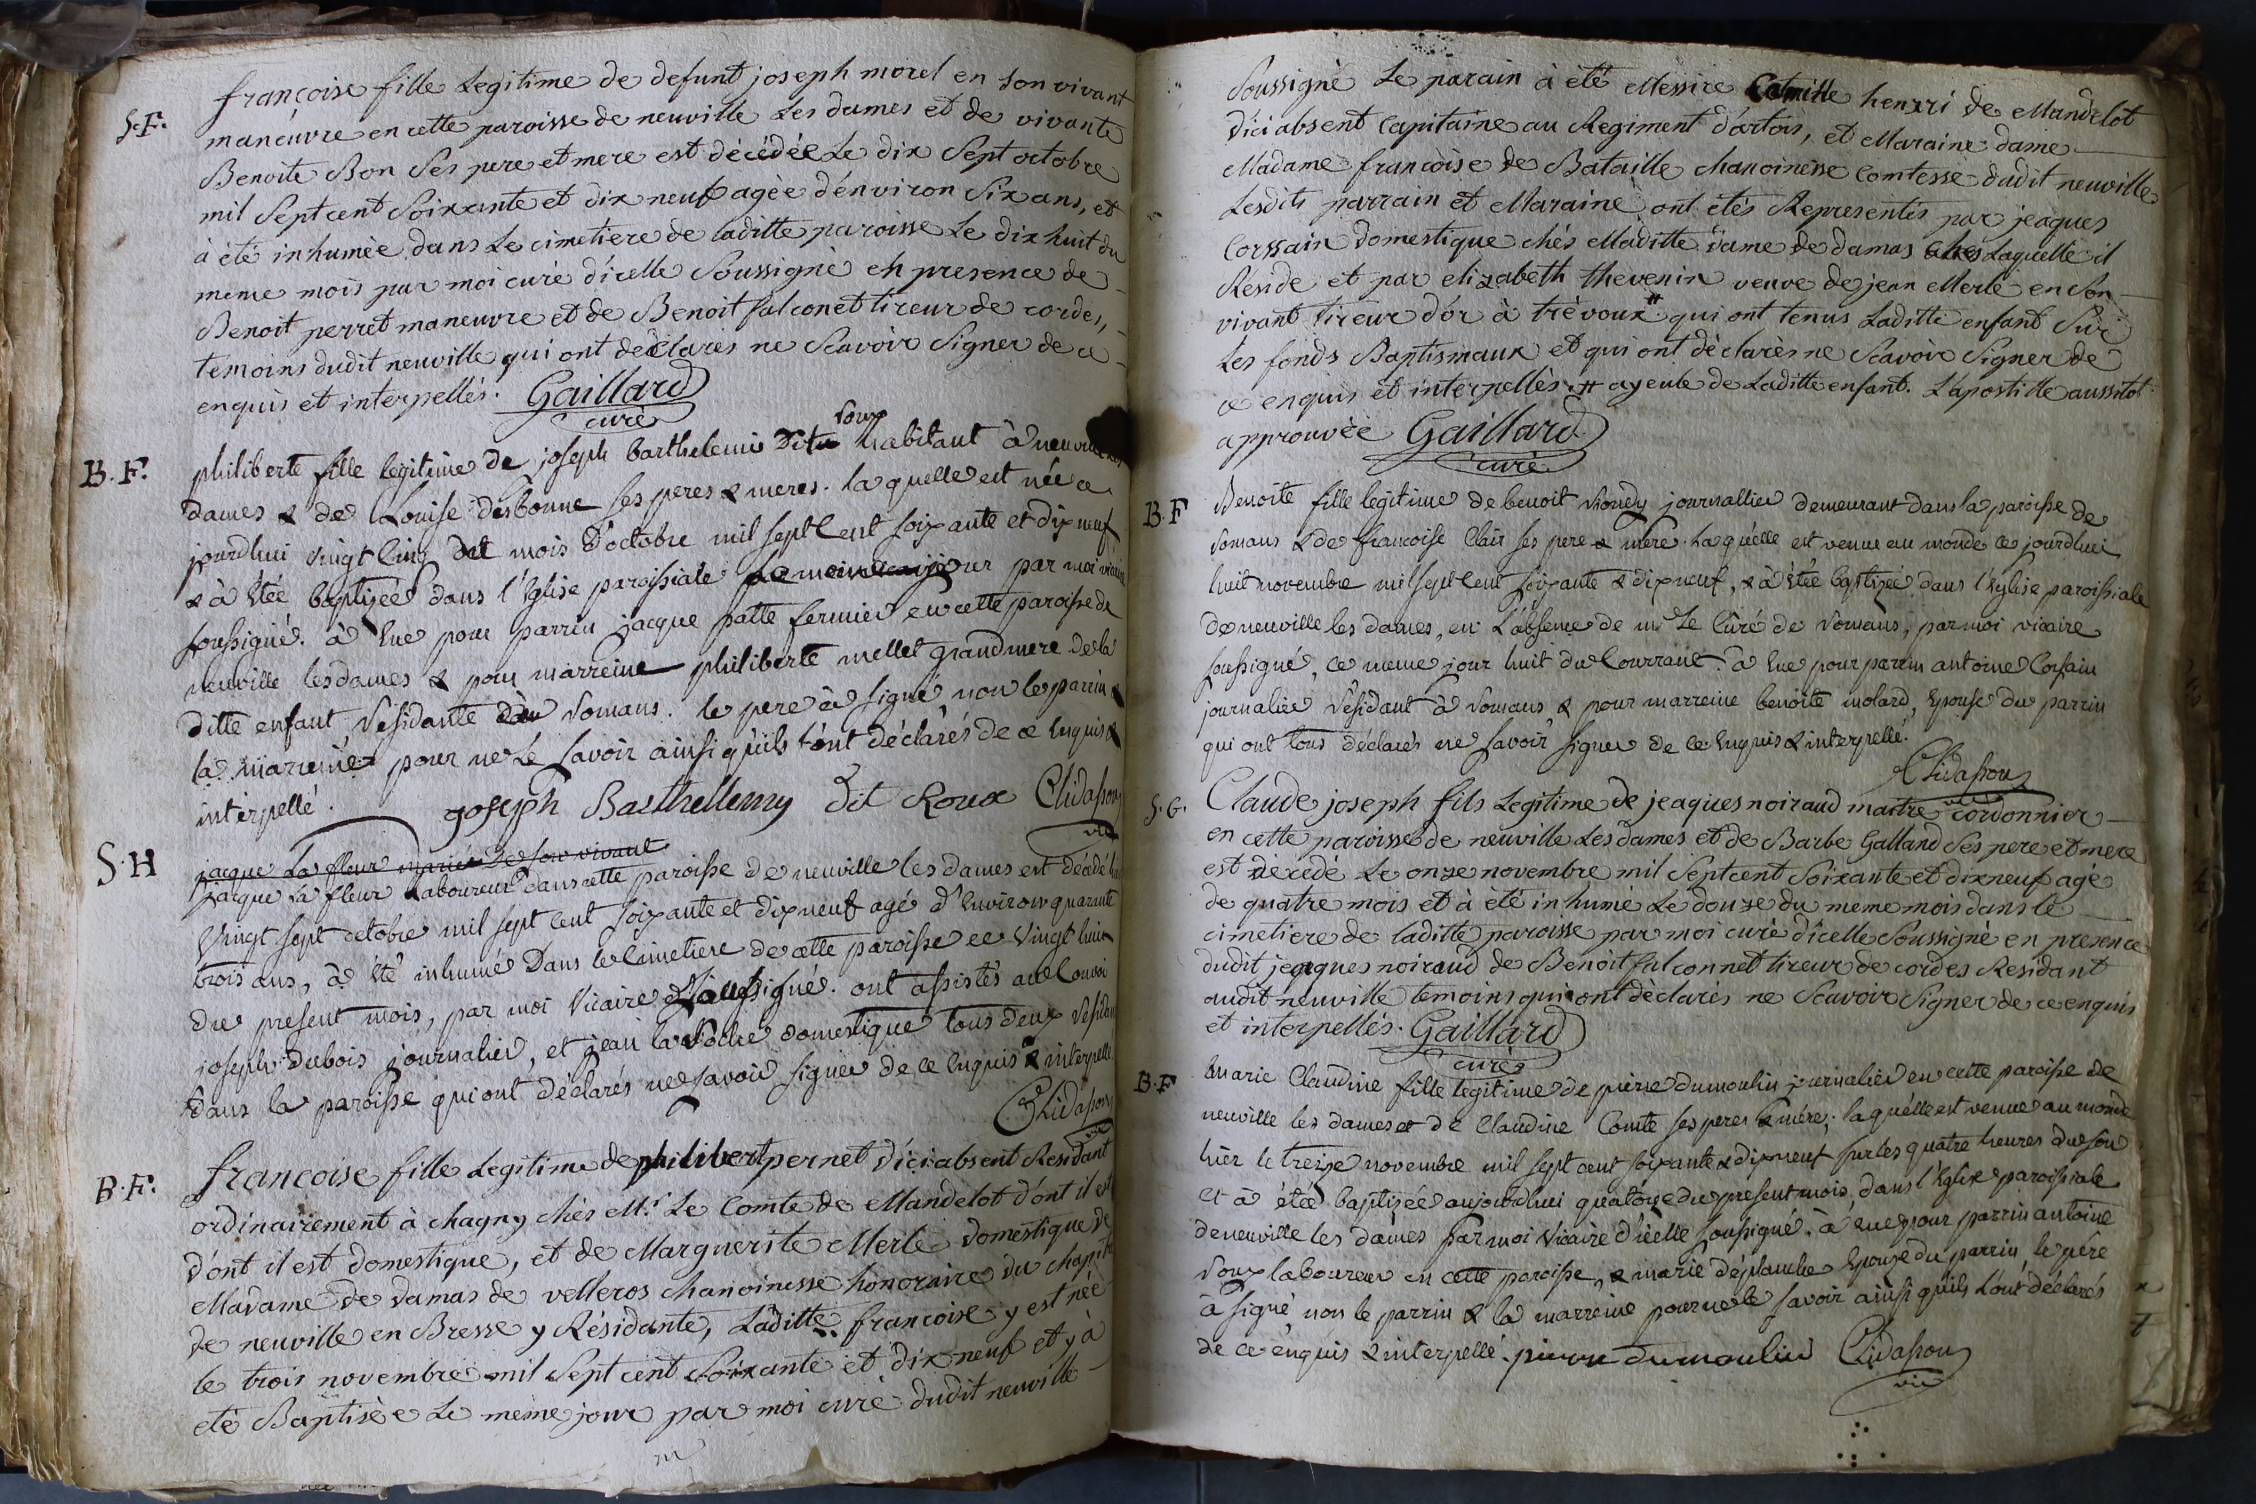 S.F.
françoise fille Legitime de defunt joseph morel en son vivant
maneuvre en cette paroisse de neuville Les dames et de vivante
Benoite Bon Ses pere et mere est décédée Le dix Sept octobre
mil Sept cent Soixante et dix neuf agèe d'énviron Six ans, et
à été inhumèe dans Le cimetiere de laditte paroisse Le dix huit du
meme mois par moi curè d'icelle Soussignè en presence de
Benoit perret maneuvre et de Benoit falconet tireur de cordes,
temoins dudit neuville qui ont déclarès ne Scavoir Signer de ce
enquis et interpellés. Gaillard
curè
B.F.
philiberte fille legitime de joseph barthelemi Dit roux habitant à neuville les
dames & de Louise desbonne ses peres & meres. la quelle est née ce
jourdhui vingt cinq du mois d'octobre mil sept Cent soixante et dix neuf
& à Etée baptizée dans l'Eglise paroissiale jour par moi vicaire
soussigné. à Eue pour parrin jacque patte fermier en cette paroisse de
neuville les dames & pour marreine philiberte mellet grandmere de la
ditte enfant, Résidante Romans. le pere à signé, non le parrin &
la marreine pour ne Le savoir ainsi qu'ils l'ont déclarés de ce Enquis &
interpellé.
joseph Barthellemy Dit Roux Clidasson
vic
S.H
jacque La fleur marié de son vivant
jacque La fleur Laboureur dans cette paroisse de neuville les dames est décédé le
Vingt sept octobre mil sept cent soixante et dix neuf agé d'Environ quarante
trois ans, à été inhumé Dans le Cimetiere de cette paroisse ce Vingt huit
du present mois, par moi Vicaire soussigné. ont assistés au Convoi
joseph Dubois journalier, et jean la Roche domestique tous deux résidans
dans la paroisse qui ont déclarés ne savoir signer de ce Enquis & interpellé
Clidasson
vic
B.F.
francoise fille Legitime de philibert pernet d'ici absent Residant
ordinairement à chagny chés Mr. Le Comte de Mandelot d'ont il est
d'ont il est domestique, et de Marguerite Merle domestique de
Madame de damas de velleros chanoinesse honoraire du chapitre
de neuville en Bresse y Résidante, Laditte francoise y est née
le trois novembre mil Sept cent Soixante et dix neuf et y à
eté Baptisèe Le meme jour par moi curè dudit neuville
Soussigné Le parain à été Messire Camille henri de Mandelot
d'ici absent Capitaine au Regiment d'artois, et Maraine dame
Madame francoise de Bataille chanoinesse comtesse dudit neuville
Lesdits parrain et Maraine ont étés Representés par jeaques
Corssain domestique chés Maditte dame de damas ches Laquelle il
Reside et par elizabeth thevenin veuve de jean Merle en Son
vivant tireur d'or à trévoux # qui ont tenus Laditte enfant Sur
Les fonds Baptismaux et qui ont déclarès ne Scavoir Signer de
ce enquis et interpellès. # ayeule de Laditte enfant. L'apostille aussitot
approuvèe Gaillard
curé
B.F
Benoite fille legitime de benoit journallier demeurant dans la paroisse de
Romans & de francoise Clair ses pere & mere. la quelle est venue au monde ce jourdhui
huit novembre mil sept Cent soixante & dix neuf, & à Etée baptizée dans l'Eglise paroissiale
de neuville les dames, en L'absence de mr Le Curé de Romans, par moi vicaire
soussigné, ce meme jour huit du Courrant. à Eue pour parrin antoine Corsain
journalier Résidant à Romans & pour marreine benoite molard, Epouse du parrin
qui ont tous déclarés ne savoir signer de ce Enquis & interpellé.
Clidasson
vic
S.G.
Claude joseph fils Legitime de jeaques noiraud maitre cordonnier
en cette paroisse de neuville Les dames et de Barbe Galland Ses pere et mere
est décédé Le onze novembre mil Sept cent Soixante et dix neuf agé
de quatre mois et à été inhumé Le douze du meme mois dans le
cimetiere de laditte paroisse par moi curè d'icelle Soussignè en presence
dudit jeaques noiraud de Benoit falconnet tireur de cordes Residant
audit neuville temoins qui ont déclarès ne Scavoir Signer de ce enquis
et interpellés. Gaillard
curè
B.F
marie Claudine fille legitime de pierre dumoulin journalier en cette paroisse de
neuville les dames et de Claudine Comte ses peres & mére; la quélle est venue au monde
hièr le treize novembre mil sept cent soixante & dix neuf sur les quatre heures du soir
et à étée baptizée aujourdhui quatorze du present mois, dans l'Eglise paroissiale
de neuville les dames par moi Vicaire d'icelle soussigné. à eue pour parrin antoine
Roux laboureur en cette paroisse, & marie déplanche Epouze du parrin, le pére
à signé, non le parrin & la marreine pour ne le savoir ainsi qu'ils L'ont déclarés
de ce énquis & interpellé. pierre dumoulin Clidasson
vic